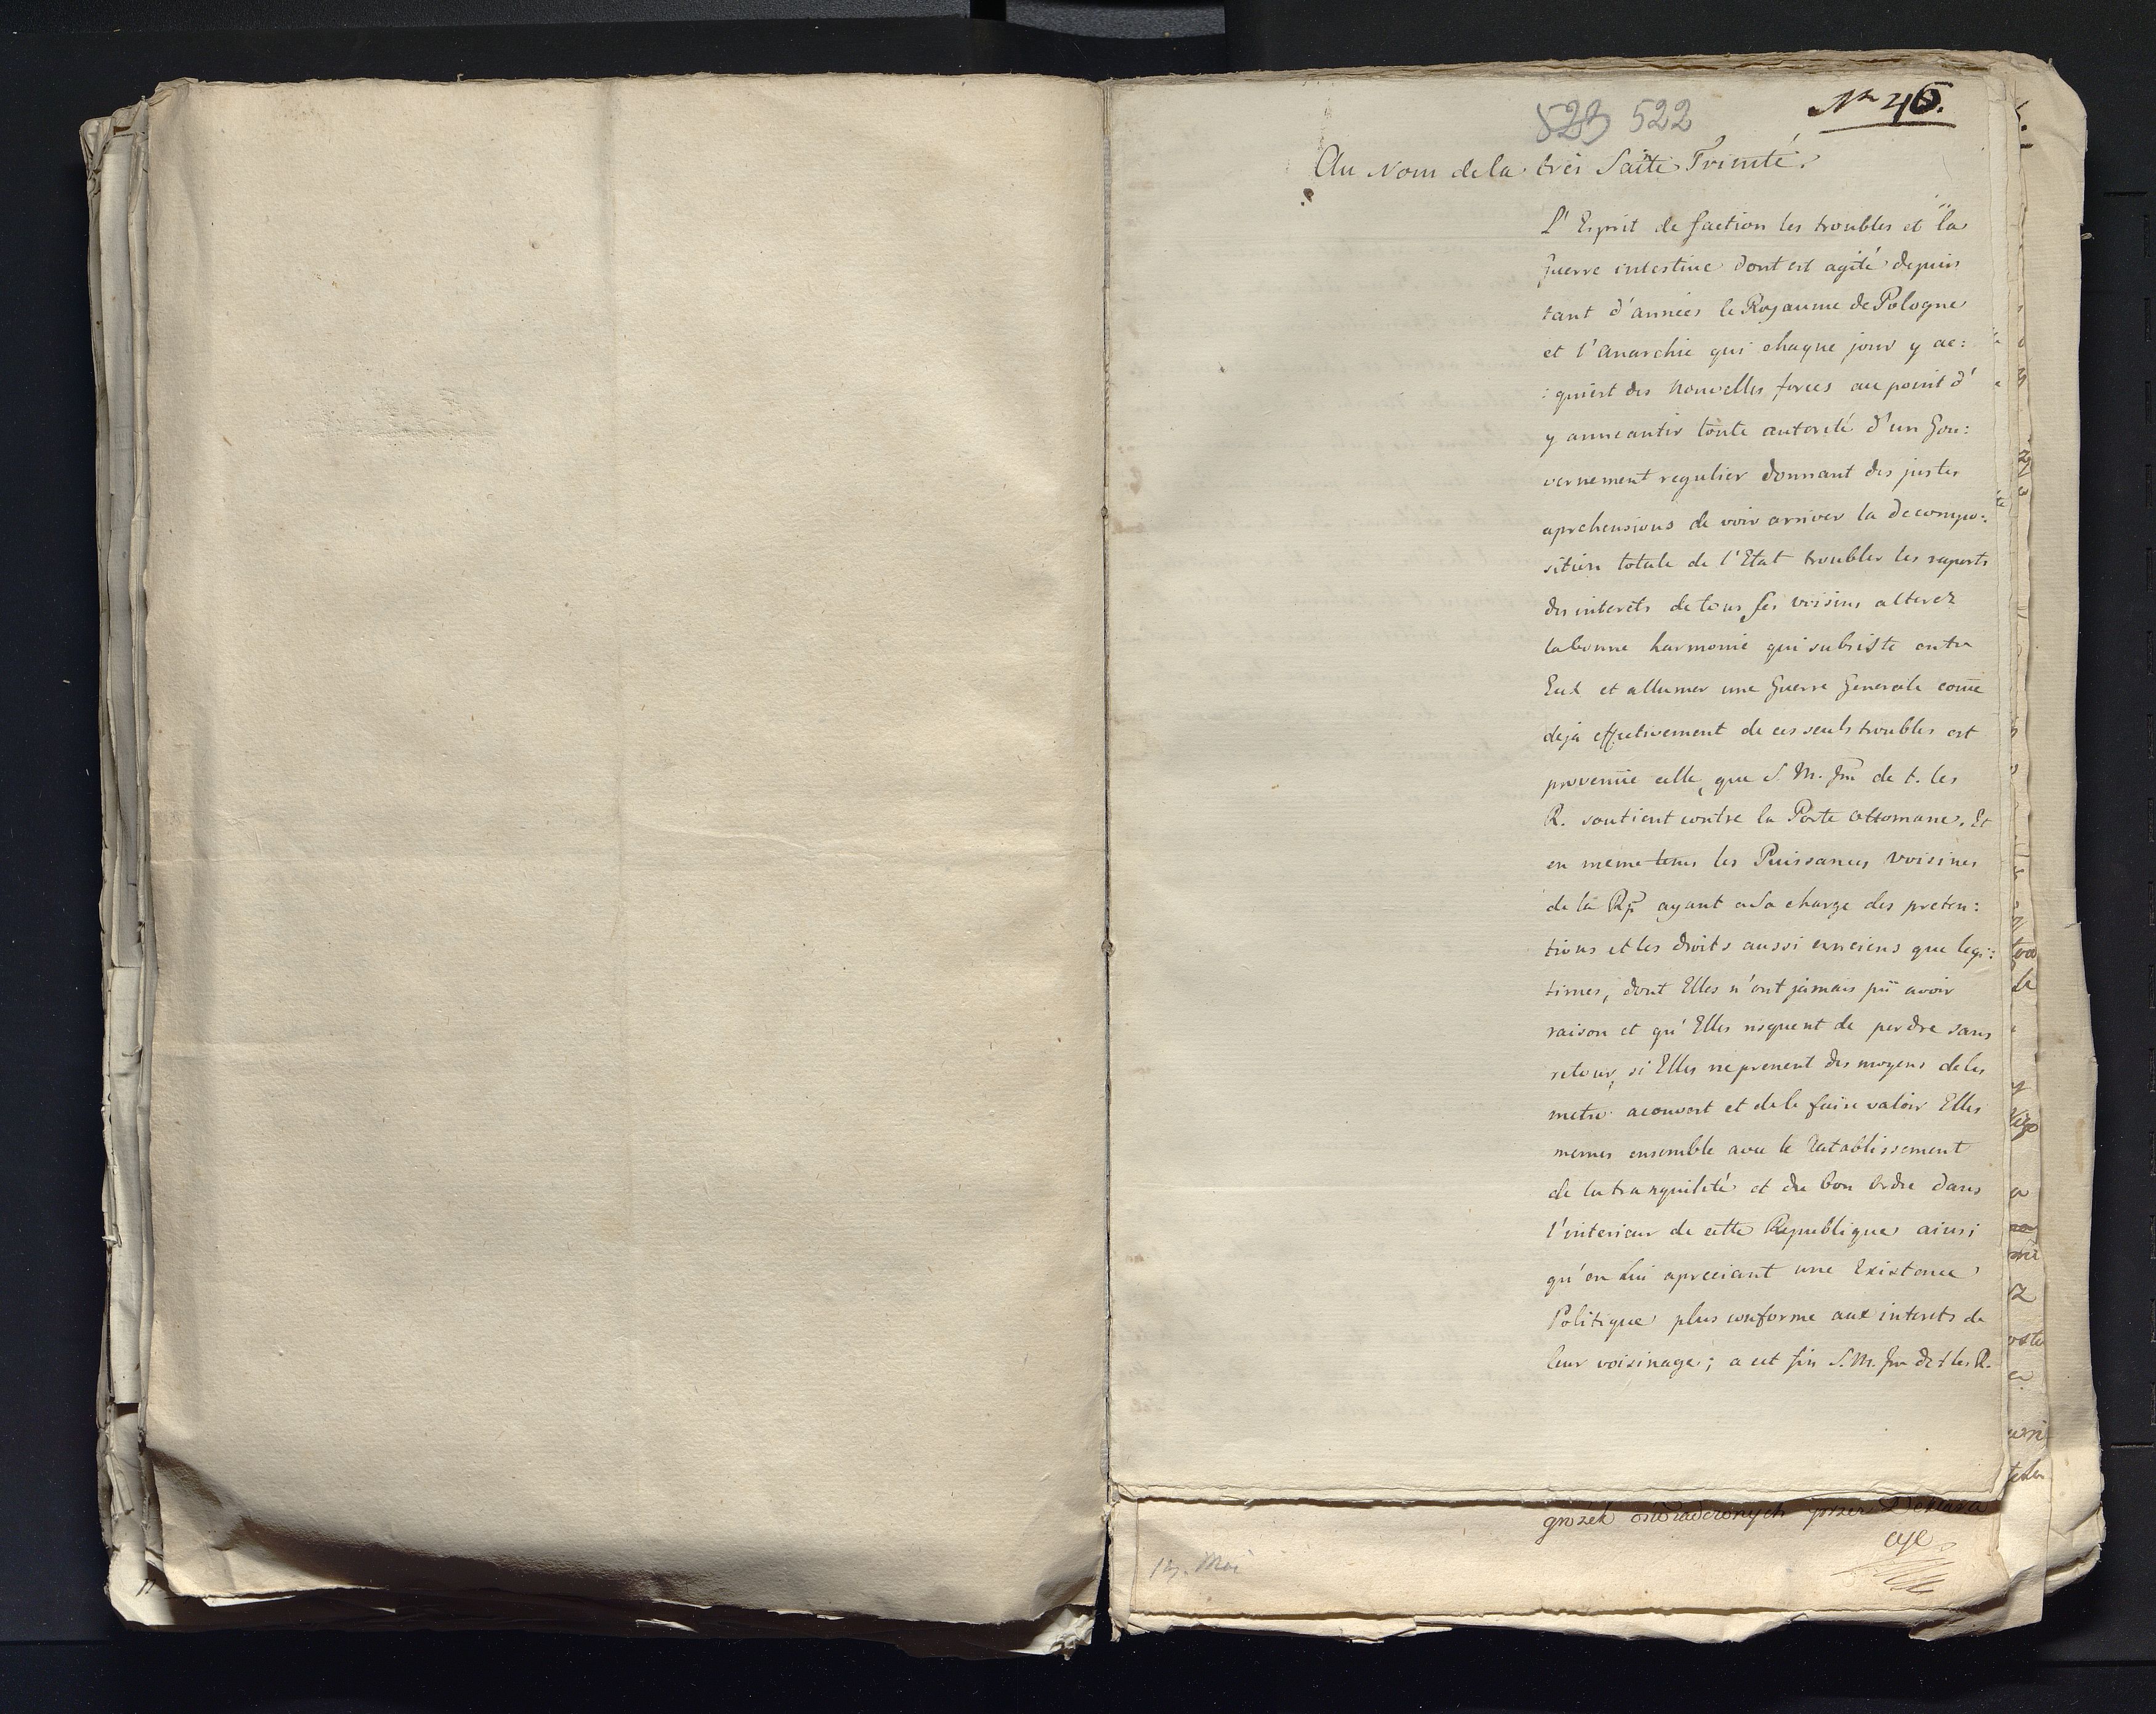 523 522
Nr 46.
Au Nom de la très Saîte Trinité.
L'Esprit de faction les troubles et la
Guerre intestine dont est agité depuis
tant d'années le Royaume de Pologne
et l'Anarchie qui chaque jour y ac:
:quiert des nouvelles forces au point d'
y anneantir toute autorité d'un Gou:
vernement regulier donnant des justes
aprehensions de voir arriver la decompo:
sition totale de l'Etat troubler les raports
des interets de tous ses voisins alterez
la bonne harmonie qui subsiste entre
Eux et allumer une Guerre Generale come
deja effectivement de ces seuls troubles est
provenüe celle, que S. M. Im de t. les
R. soutient contre la Porte Ottomane. Et
en meme tems les Puissances voisines
de la Rp ayant a Sa charge des preten:
tions et les droits aussi anciens que legi:
times, dont Elles n'ont jamais pü avoir
raison et qu'Elles risquent de perdre sans
retour, si Elles ne prenent des moyens de les
metre a couvert et de le faire valoir Elles
memes ensemble avec le Retablissement
de la tranquilité et du bon Ordre dans
l'interieur de cette Republique ainsi
qu'en Lui apreciant une Existence
Politique plus conforme aux interets de
leur voisinage; a cet fin S. M. Im de t les R.
grozek oswiadczonych przez Deklara
cye
17. Mai